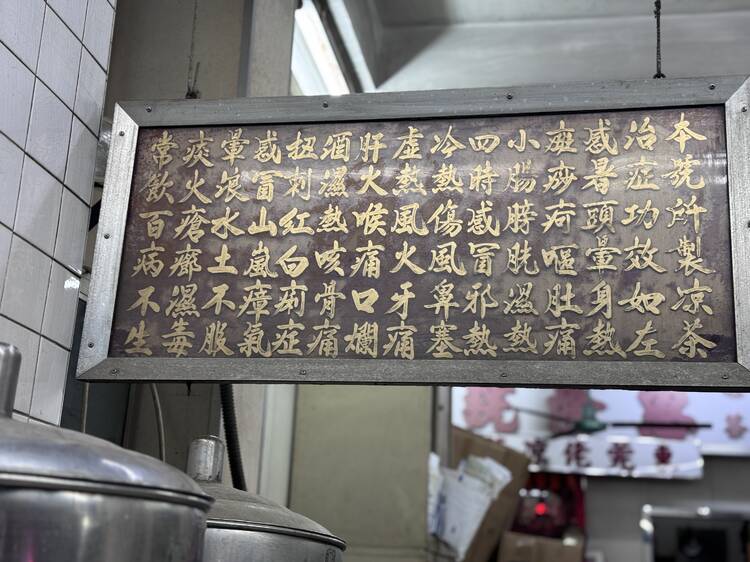 本號所製凉茶
治症功效如左
感暑頭暈身熱
癍痧疴嘔肚痛
小腸膀胱濕熱
四時感冒邪熱
冷熱傷風鼻塞
虛熱風火牙痛
肝火喉痛口爛
酒濕熱咳骨痛
扭刺紅白痢症
感冒山嵐瘴氣
暈浪水土不服
痰火瘡癤濕毒
常飲百病不生
東莞佬凉